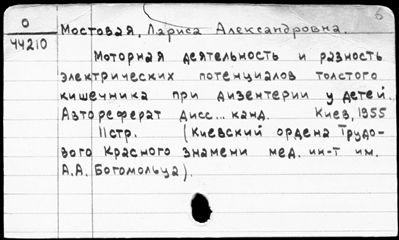 О
44210
Мостовая, Лариса Александровна.
Моторная деятельность и разность
электрических потенциалов толстого
кишечника при дизентерии у детей.
Автореферат дисс... канд. Киев, 1955
11стр. (Киевский ордена Трудо-
вого Красного знамени мед. ин-т им.
А.А. Богомольца).